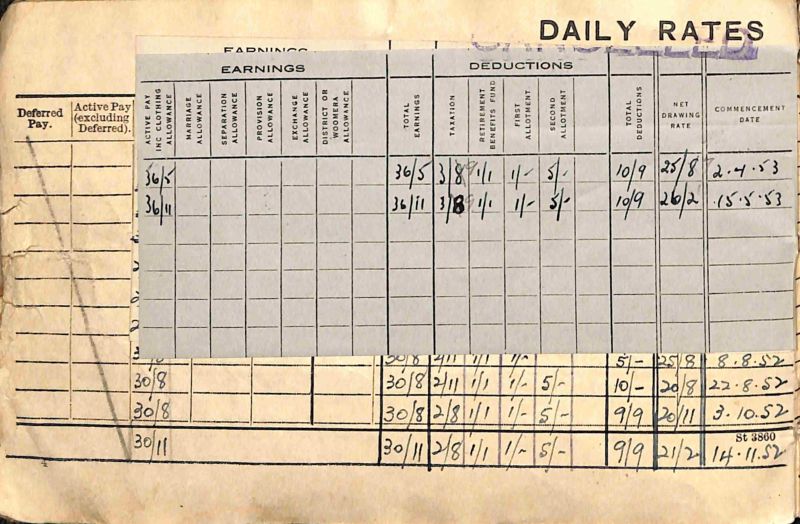 DAILY RATES
CANCELLED
EARNINGS
EARNINGS DEDUCTIONS
Deferred Pay. Active Pay (excluding Deferred). ACTIVE PAY INC CLOTHING ALLOWANCE MARRIAGE ALLOWANCE SEPARATION ALLOWANCE PROVISION ALLOWANCE EXCHANGE ALLOWANCE DISTRICT OR WOOMERA ALLOWANCE TOTAL EARNINGS TAXATION RETIREMENT BENEFITS FUND FIRST ALLOTMENT SECOND ALLOTMENT TOTAL DEDUCTIONS NET DRAWING RATE COMMENCEMENT DATE
36/5 36/5 3/8 1/1 1/- 5/- 10/9 25/8 2.4.53
36/11 36/11 3/8 1/1 1/- 5/- 10/9 26/2 15.5.53
30/8 2/11 1/1 1/- 5/- 25/8 8.8.52
30/8 30/8 2/11 1/1 1/- 5/- 10/- 20/8 22.8.52
30/8 30/8 2/8 1/1 1/- 5/- 9/9 20/11 3.10.52
St 3860
30/11 30/11 2/8 1/1 1/- 5/- 9/9 21/2 14.11.52